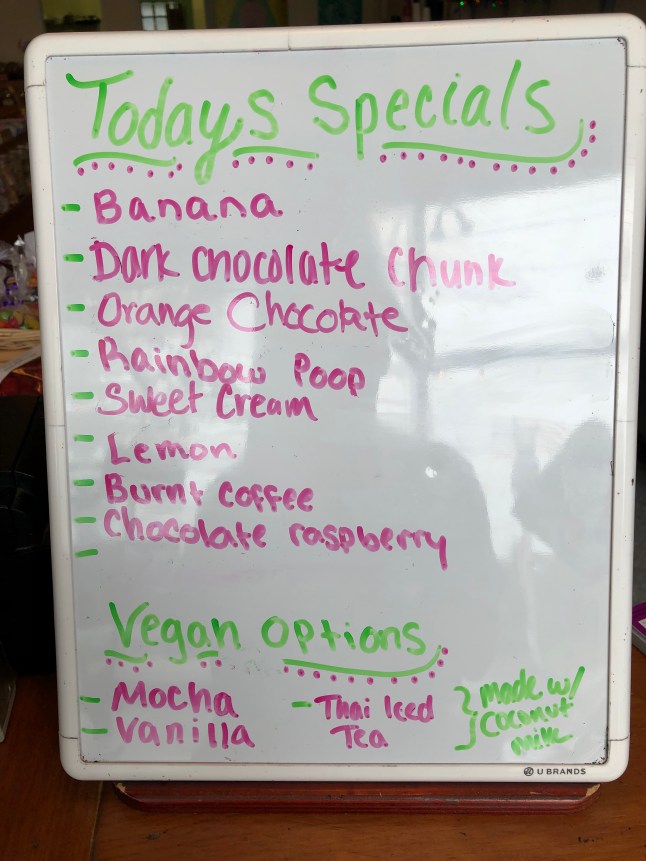 Todays Specials
- Banana
- Dark chocolate chunk
- Orange Chocolate
- Rainbow Poop
- Sweet Cream
- Lemon
- Burnt coffee
- Chocolate raspberry
-
Vegan options
- Mocha
- Vanilla
- Thai Iced
Tea
made w/
Coconut
milk
U BRANDS